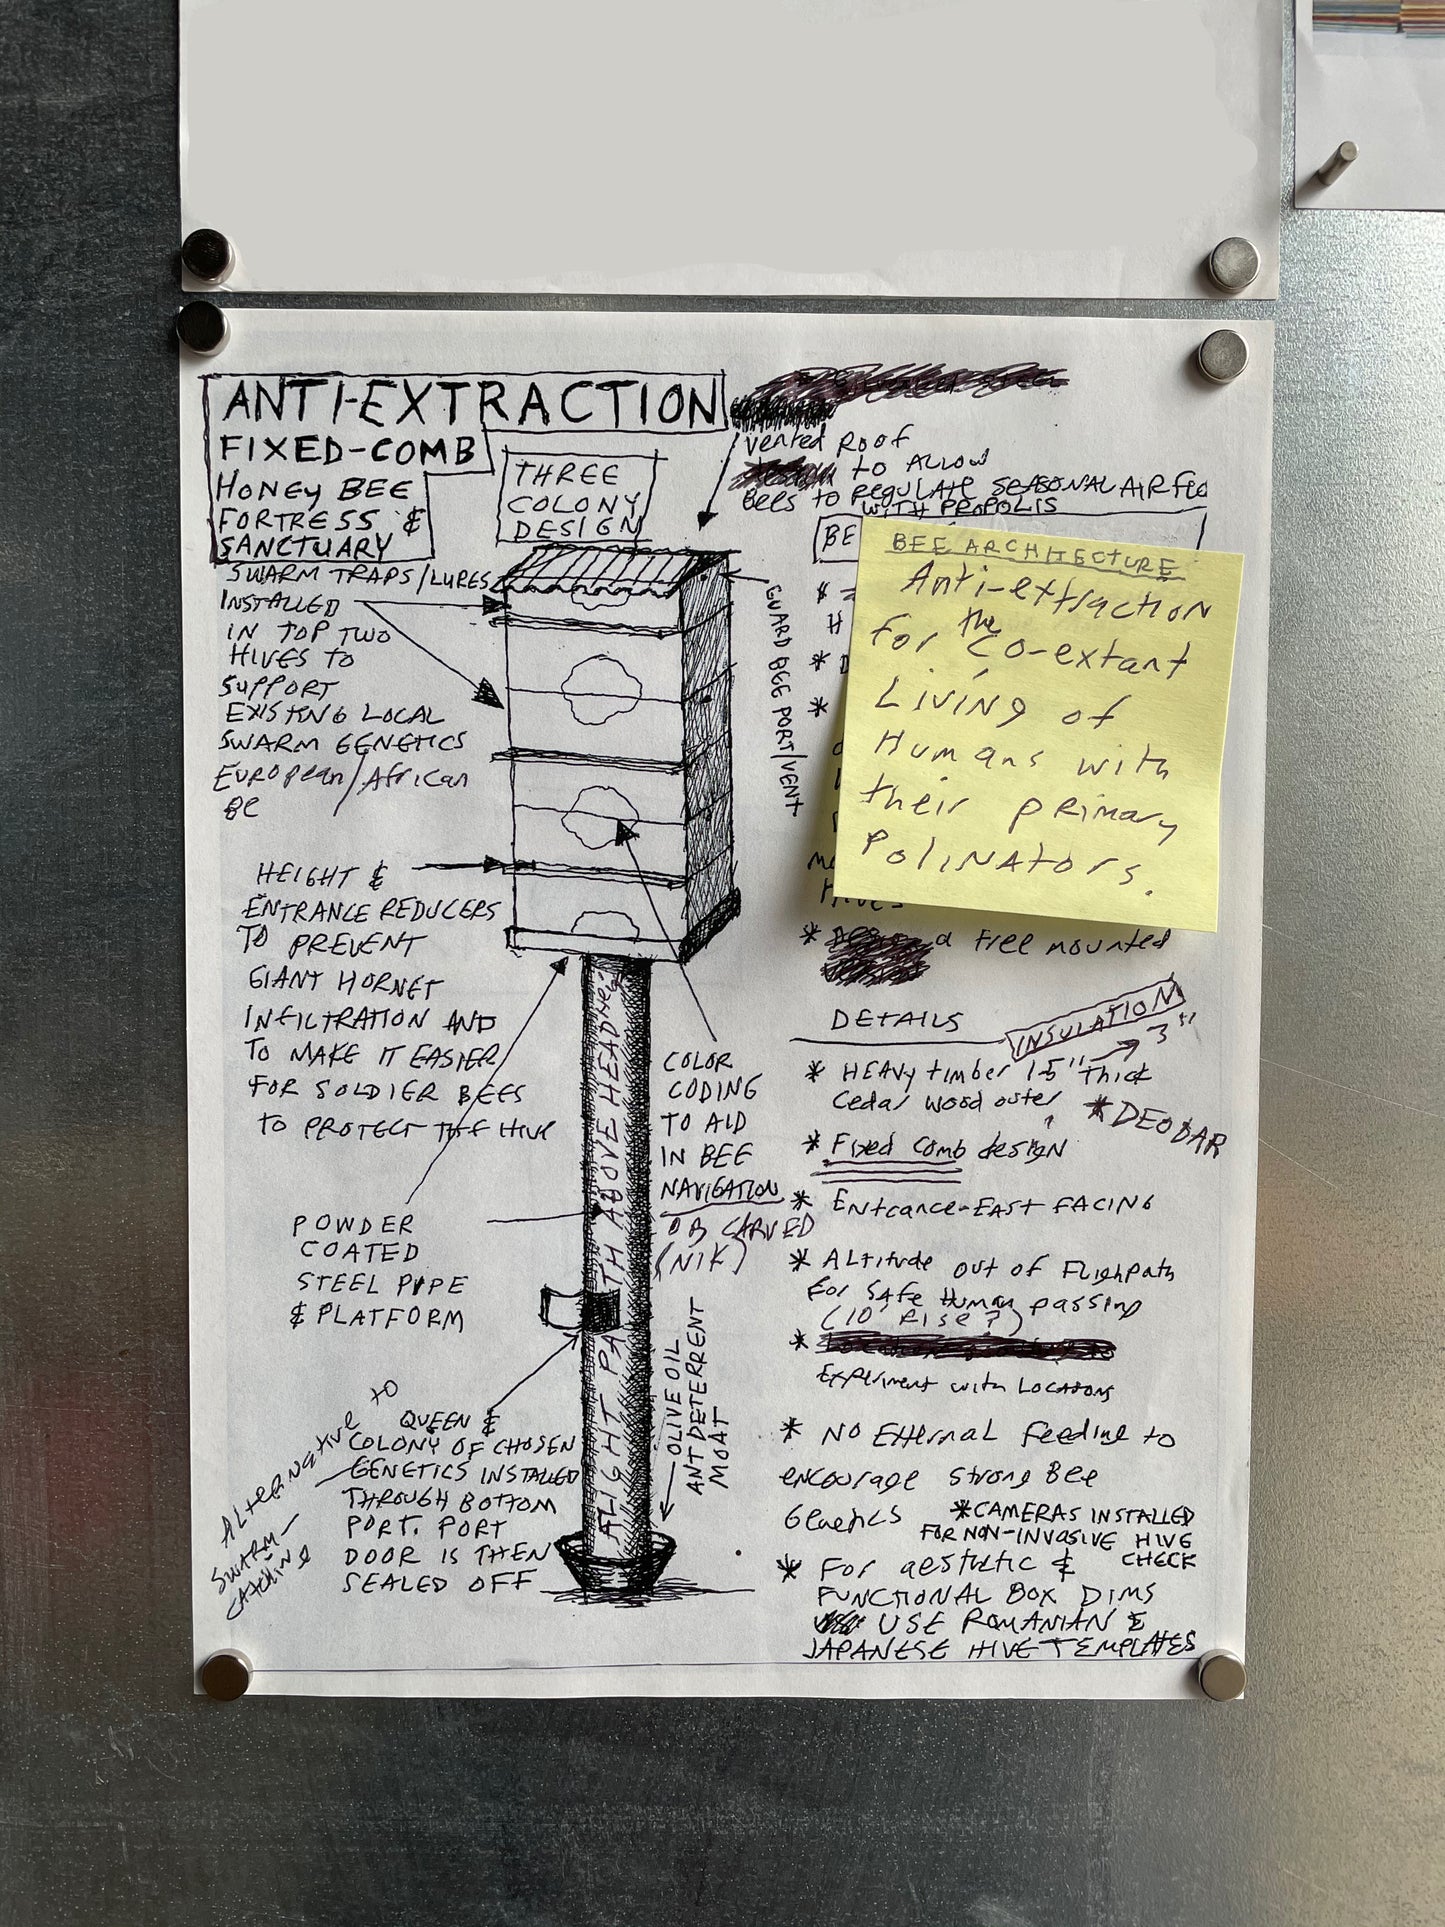 ANTI-EXTRACTION
FIXED-COMB
HONEY BEE
FORTRESS &
SANCTUARY
THREE
COLONY
DESIGN
Vented Roof
to ALLOW
BEES to REGULATE SEASONAL AIR FLO
WITH PROPOLIS
SWARM TRAPS/LURES
INSTALLED
IN TOP TWO
HIVES TO
SUPPORT
EXISTNG LOCAL
SWARM GENETICS
European/African
GUARD BEE PORT/VENT
BEE ARCHITECTURE
Anti-extraction
for the Co-extant
Living of
Humans with
their primary
Polinators.
BE
HIVES
* a Free mounted
HEIGHT &
ENTRANCE REDUCERS
TO PREVENT
GIANT HORNET
INFILTRATION AND
TO MAKE IT EASIER
FOR SOLDIER BEES
TO PROTECT THE HIVE
POWDER
COATED
STEEL PIPE
& PLATFORM
FLIGHT PATH ABOVE HEAD
COLOR
CODING
TO AID
IN BEE
NAVIGATION
OR CARVED
(NIK)
OLIVE OIL
ANT DETERRENT
MOAT
ALTERNATIVE to
SWARM-
CATCHING
QUEEN &
COLONY OF CHOSEN
GENETICS INSTALLED
THROUGH BOTTOM
PORT. PORT
DOOR IS THEN
SEALED OFF
DETAILS
INSULATION
3"
* HEAVY timber 1.5" thick
Cedar wood outer
* DEODAR
* Fixed Comb design
* Entrance-EAST FACING
* ALtitude out of Flighpath
For Safe Human passing
(10' RISE?)
*
Experiment with Locations
* NO External Feeding to
encourage Strong Bee
Genetics
* CAMERAS INSTALLED
FOR NON-INVASIVE HIVE
CHECK
* For aesthetic &
FUNCTIONAL BOX DIMS
USE ROMANIAN &
JAPANESE HIVE TEMPLATES